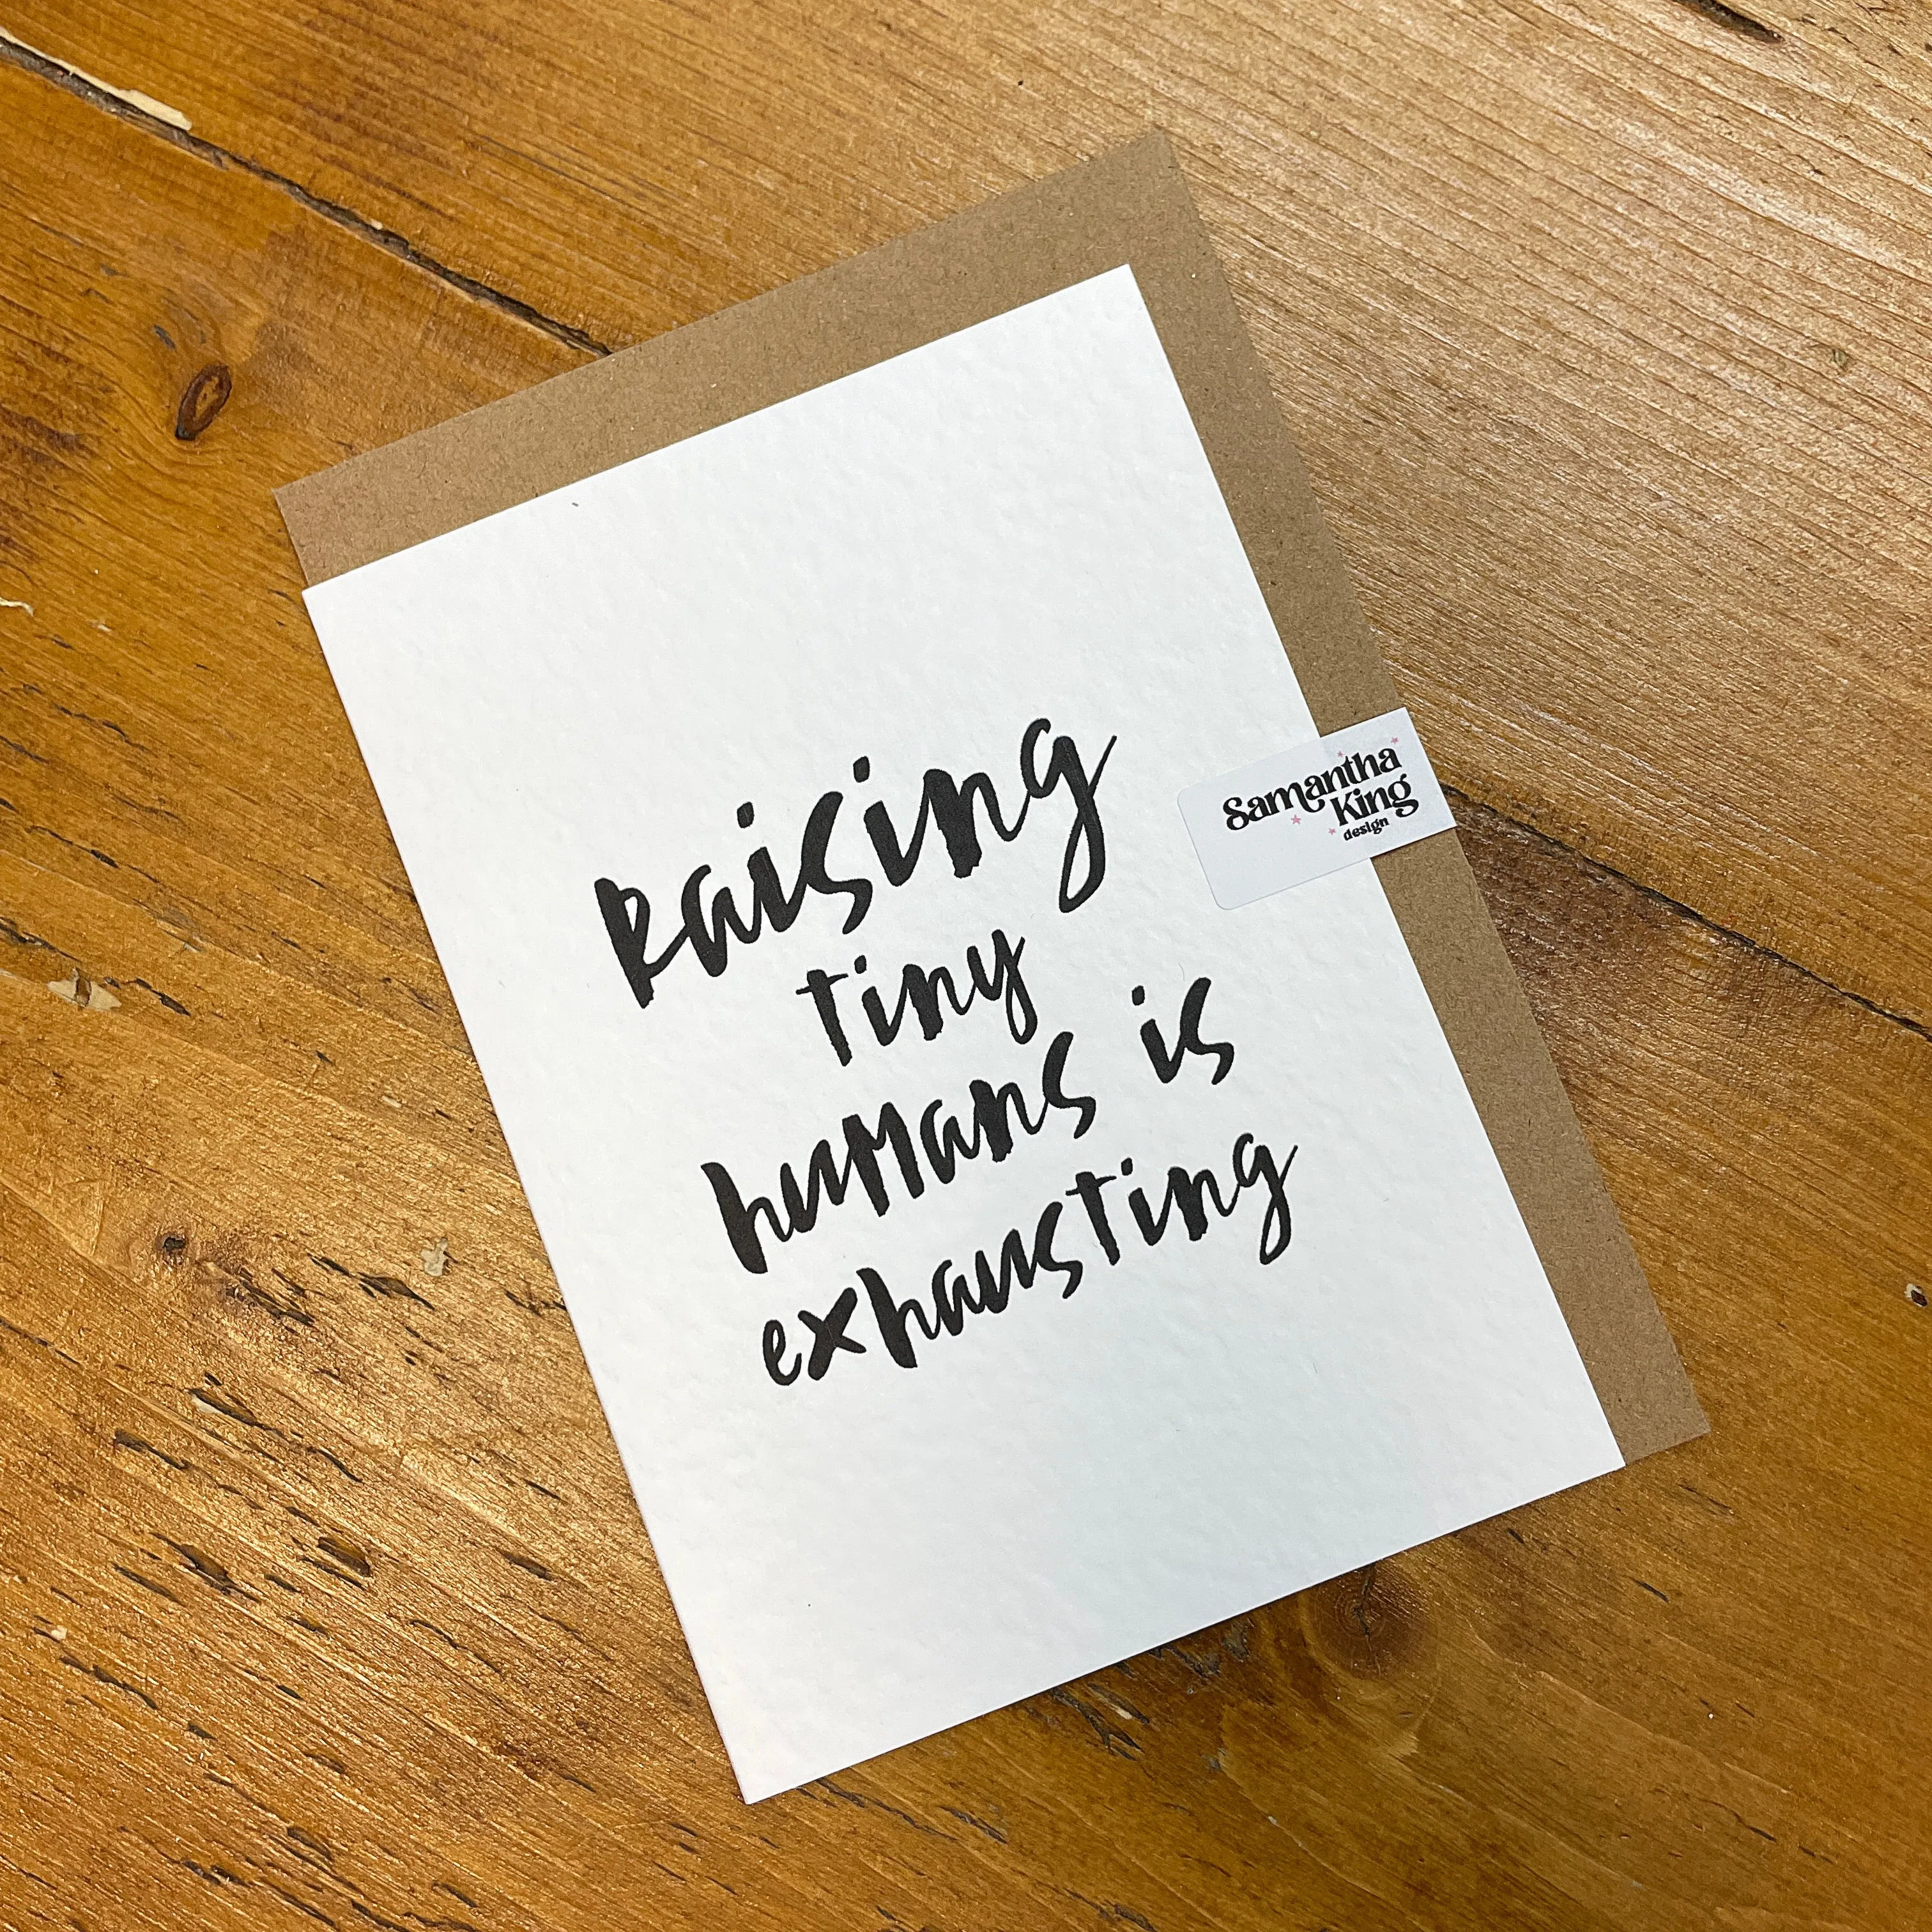 Raising
tiny
humans is
exhausting
Samantha
King
design